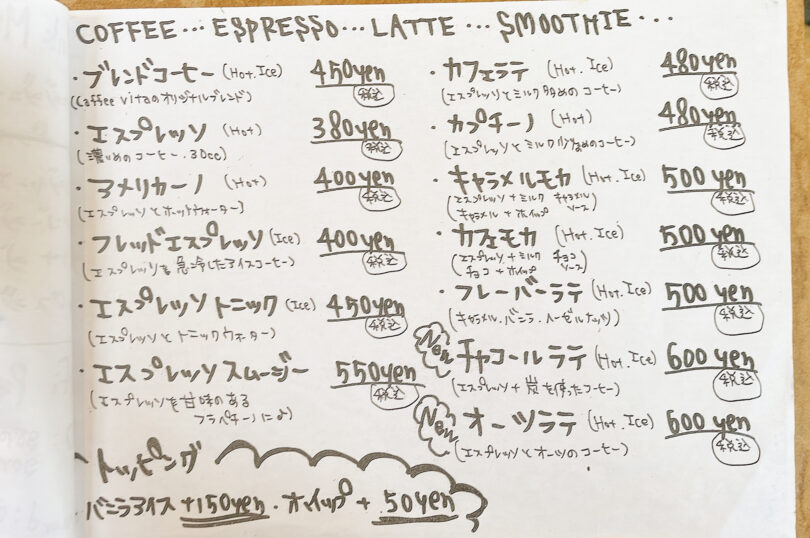 COFFEE... ESPRESSO... LATTE ... SMOOTHIE...
・ブレンドコーヒー (Hot.Ice) 450yen 税込
(Caffee vitaのオリジナルブレンド)
・エスプレッソ (Hot) 380yen 税込
(濃いめのコーヒー.30cc)
・アメリカーノ (Hot) 400yen 税込
(エスプレッソとホットウォーター)
・フレッドエスプレッソ (Ice) 400yen 税込
(エスプレッソを急冷したアイスコーヒー)
・エスプレッソトニック (Ice) 450yen 税込
(エスプレッソとトニックウォーター)
・エスプレッソスムージー 550yen 税込
(エスプレッソを甘味のある
フラペチーノに♪)
トッピング
バニラアイス +150yen ・ホイップ + 50yen
・カフェラテ (Hot.Ice) 480yen 税込
(エスプレッソとミルク多めのコーヒー)
・カプチーノ (Hot) 480yen 税込
(エスプレッソとミルク少なめのコーヒー)
・キャラメルモカ (Hot.Ice) 500yen 税込
(エスプレッソ+ミルク キャラメル
キャラメル+ホイップ ソース)
・カフェモカ (Hot.Ice) 500yen 税込
(エスプレッソ+ミルク チョコ
チョコ+ホイップ ソース)
・フレーバーラテ (Hot.Ice) 500yen 税込
(キャラメル.バニラ.ヘーゼルナッツ)
New チャコールラテ (Hot.Ice) 600yen 税込
(エスプレッソ+炭を使ったコーヒー)
New オーツラテ (Hot.Ice) 600yen 税込
(エスプレッソとオーツのコーヒー)